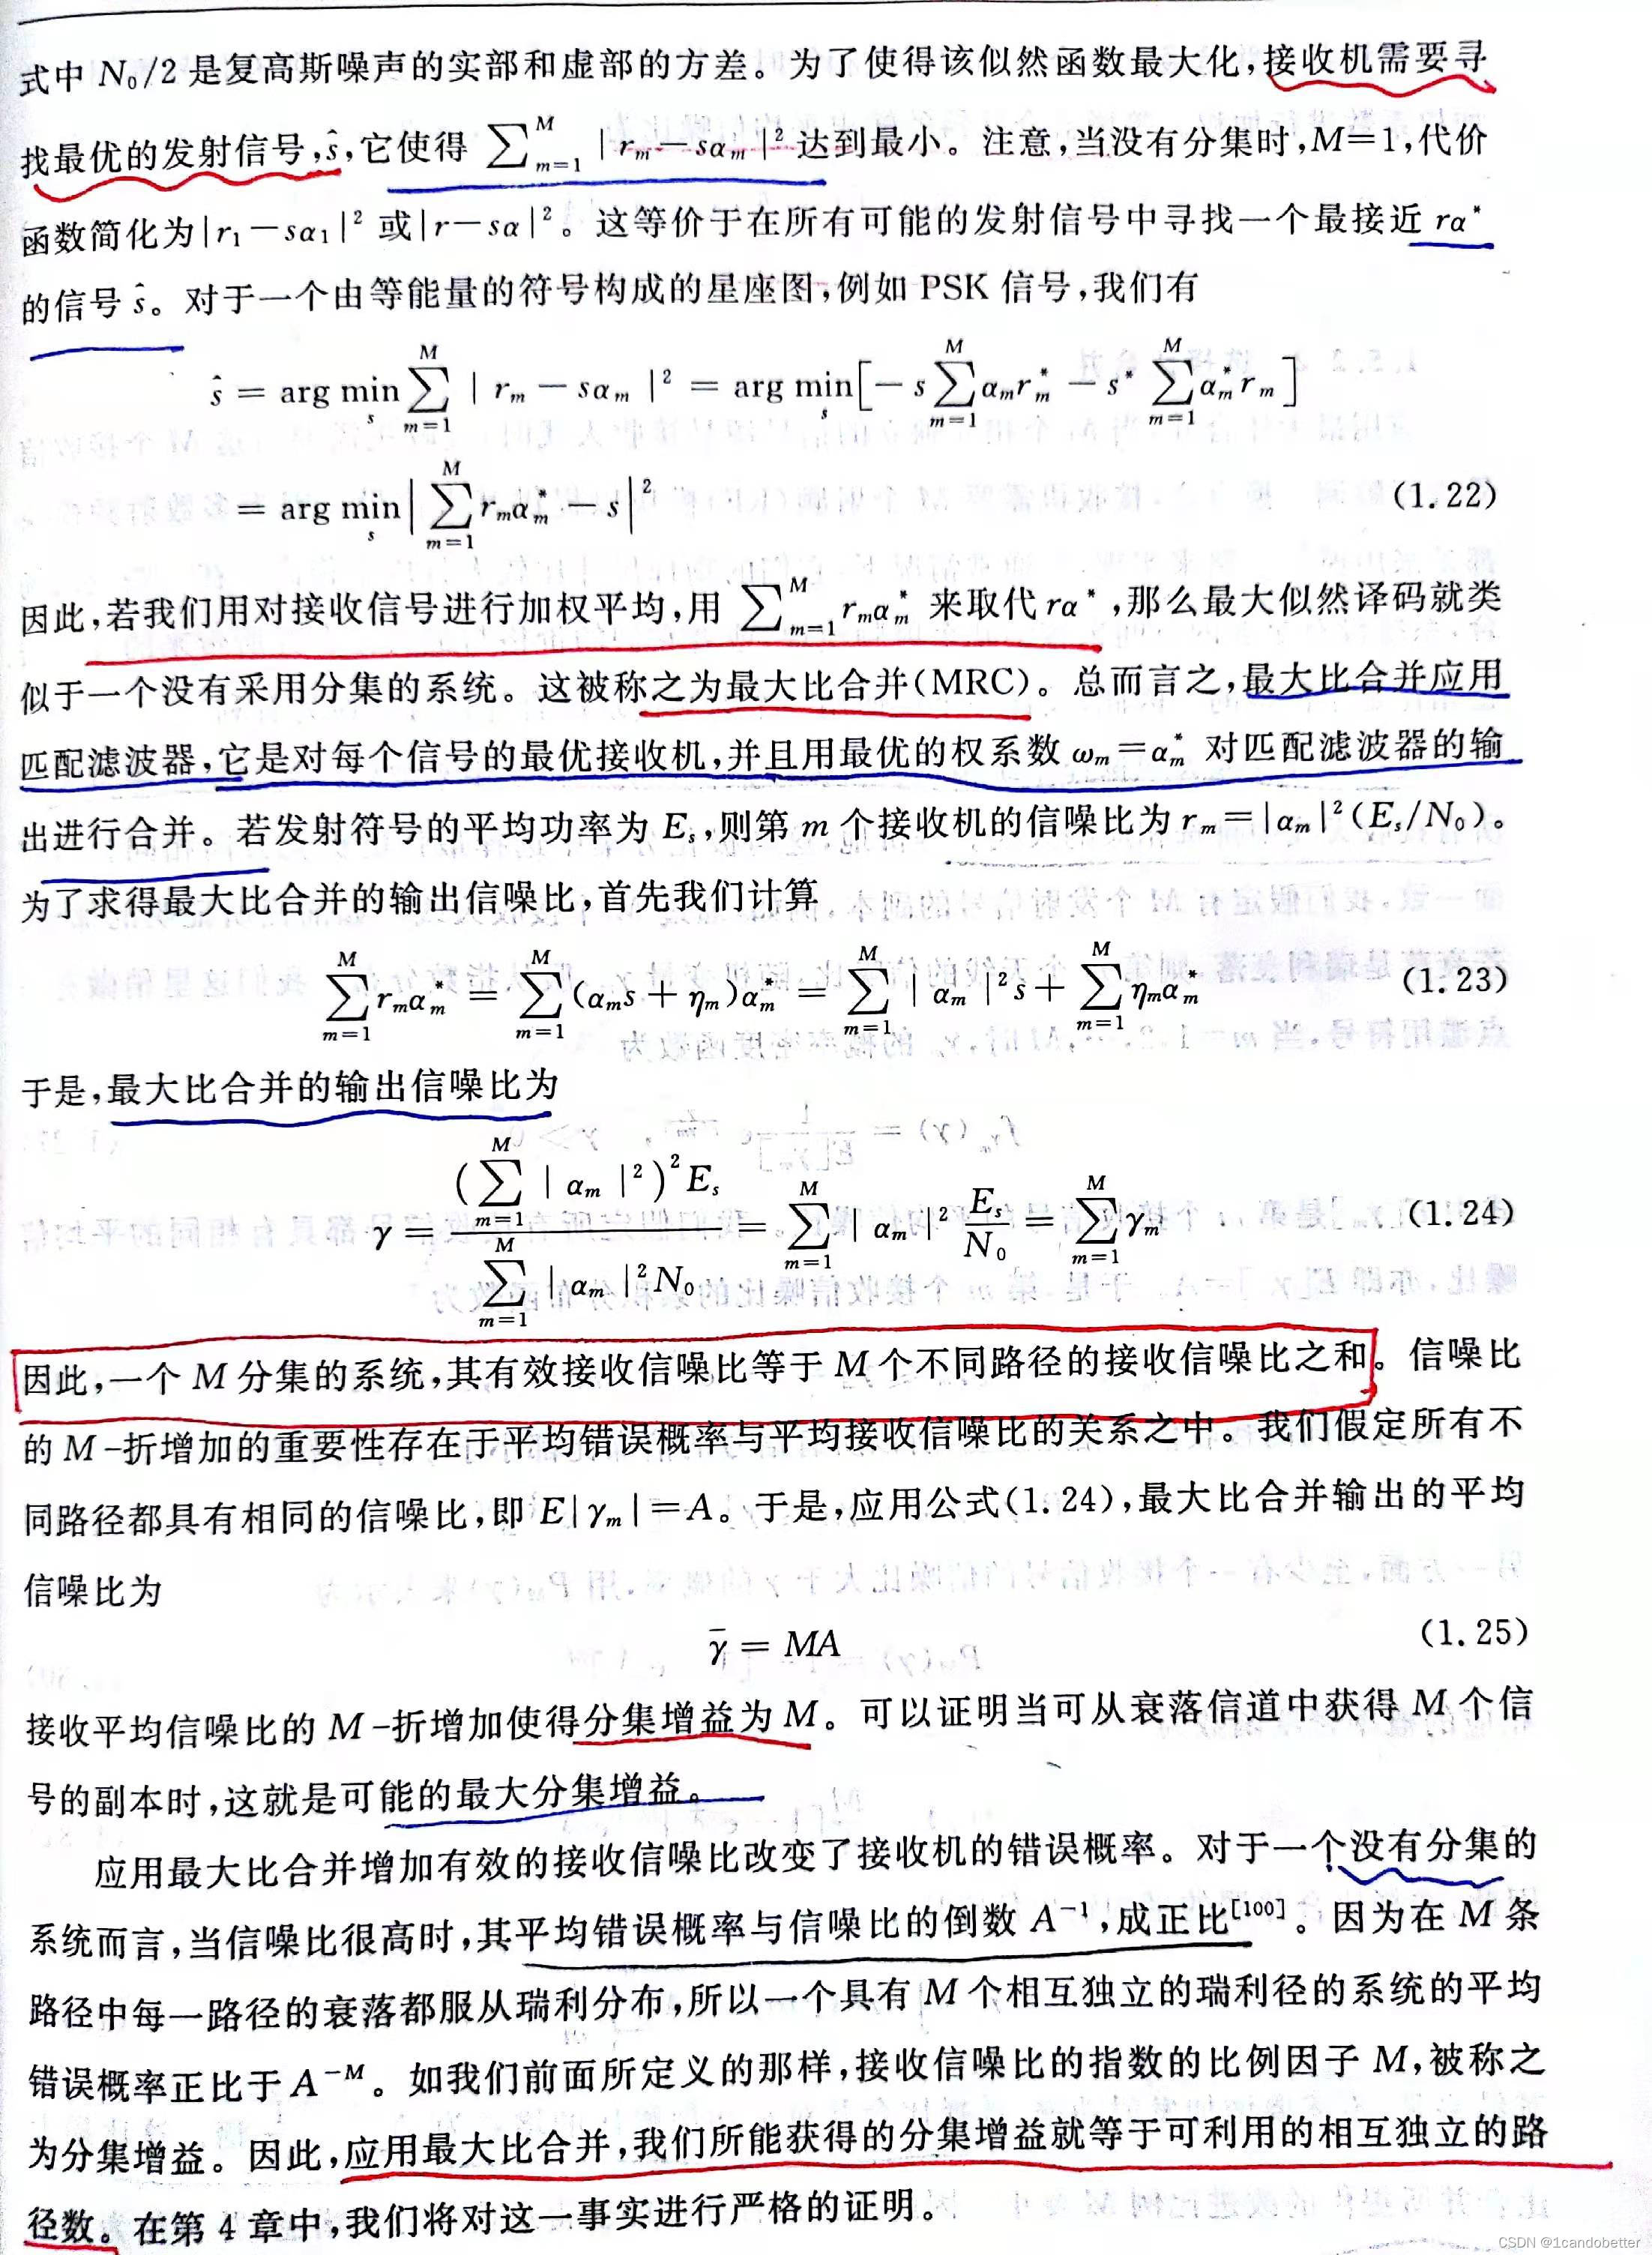 式中 N₀/2 是复高斯噪声的实部和虚部的方差。为了使得该似然函数最大化,接收机需要寻
找最优的发射信号,ŝ,它使得 ∑_{m=1}^{M} |r_m－sα_m|² 达到最小。注意,当没有分集时,M＝1,代价
函数简化为|r₁－sα₁|² 或|r－sα|²。这等价于在所有可能的发射信号中寻找一个最接近 rα*
的信号 ŝ。对于一个由等能量的符号构成的星座图,例如 PSK 信号,我们有
ŝ = arg min_s ∑_{m=1}^{M} | r_m － sα_m |² = arg min_s [－ s ∑_{m=1}^{M} α_m r_m^* － s^* ∑_{m=1}^{M} α_m^* r_m]
= arg min_s | ∑_{m=1}^{M} r_m α_m^* － s |² (1.22)
因此,若我们用对接收信号进行加权平均,用 ∑_{m=1}^{M} r_m α_m^* 来取代 rα*,那么最大似然译码就类
似于一个没有采用分集的系统。这被称之为最大比合并(MRC)。总而言之,最大比合并应用
匹配滤波器,它是对每个信号的最优接收机,并且用最优的权系数 ω_m＝α_m^* 对匹配滤波器的输
出进行合并。若发射符号的平均功率为 E_s,则第 m 个接收机的信噪比为 r_m＝|α_m|²(E_s/N₀)。
为了求得最大比合并的输出信噪比,首先我们计算
∑_{m=1}^{M} r_m α_m^* = ∑_{m=1}^{M} (α_m s + η_m)α_m^* = ∑_{m=1}^{M} | α_m |² s + ∑_{m=1}^{M} η_m α_m^* (1.23)
于是,最大比合并的输出信噪比为
γ = (∑_{m=1}^{M} | α_m |²)² E_s / ∑_{m=1}^{M} | α_m |² N₀ = ∑_{m=1}^{M} | α_m |² E_s/N₀ = ∑_{m=1}^{M} γ_m (1.24)
因此,一个 M 分集的系统,其有效接收信噪比等于 M 个不同路径的接收信噪比之和。信噪比
的 M-折增加的重要性存在于平均错误概率与平均接收信噪比的关系之中。我们假定所有不
同路径都具有相同的信噪比,即 E|γ_m|＝A。于是,应用公式(1.24),最大比合并输出的平均
信噪比为
γ̄ = MA (1.25)
接收平均信噪比的 M-折增加使得分集增益为 M。可以证明当可从衰落信道中获得 M 个信
号的副本时,这就是可能的最大分集增益。
应用最大比合并增加有效的接收信噪比改变了接收机的错误概率。对于一个没有分集的
系统而言,当信噪比很高时,其平均错误概率与信噪比的倒数 A⁻¹,成正比[100]。因为在 M 条
路径中每一路径的衰落都服从瑞利分布,所以一个具有 M 个相互独立的瑞利径的系统的平均
错误概率正比于 A^{-M}。如我们前面所定义的那样,接收信噪比的指数的比例因子 M,被称之
为分集增益。因此,应用最大比合并,我们所能获得的分集增益就等于可利用的相互独立的路
径数。在第 4 章中,我们将对这一事实进行严格的证明。
CSDN @1candobetter